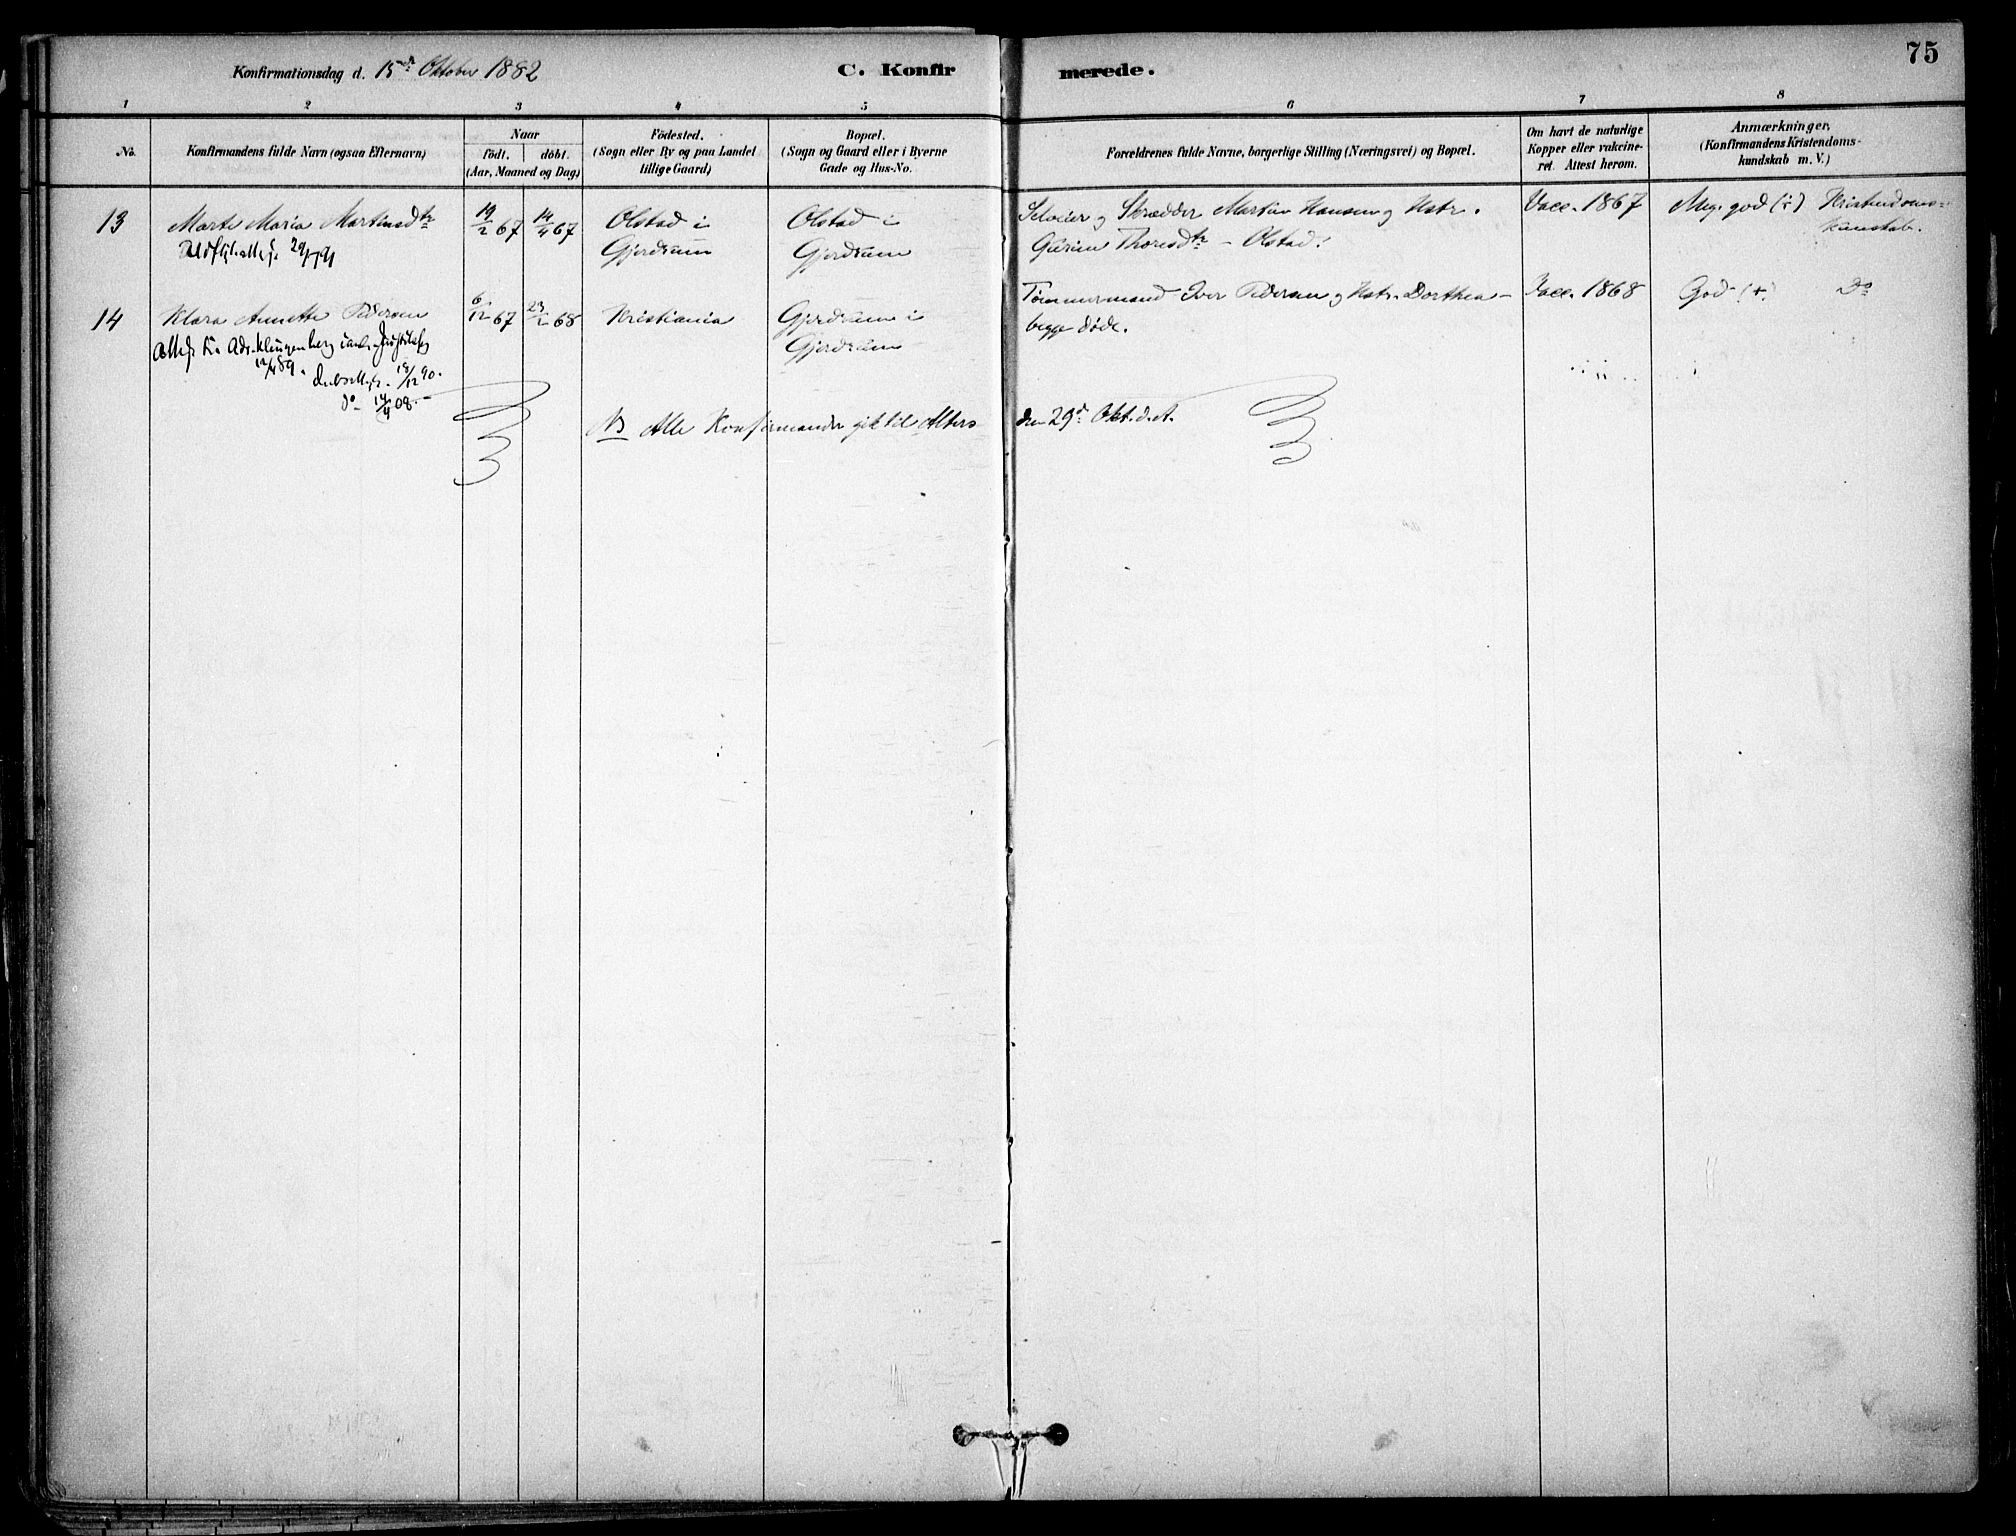 75
Konfirmationsdag d. 15de Oktober 1882
C. Konfirmerede.
1 2 3 4 5 6 7 8
No.
Konfirmandens fulde Navn (ogsaa Efternavn)
Naar
födt. döbt.
(Aar, Maaned og Dag)
Födested.
(Sogn eller By og paa Landet
tillige Gaard)
Bopæl.
(Sogn og Gaard eller i Byerne
Gade og Hus-No.
Forældrenes fulde Navne, borgerlige Stilling (Næringsvei) og Bopæl.
Om havt de naturlige
Kopper eller vakcine-
ret. Attest herom.
Anmærkninger.
(Konfirmandens Kristendoms-
kundskab m. V.)
13 Marte Maria Martinsdtr 19/2 67 14/4 67 Olstad i Gjerdrum Olstad i Gjerdrum
Selveier og Skrædder Martin Hansen og Hstr.
Thoresdtr - Olstad.
Vacc. 1867 Meg. god (÷) Kristendoms-
kundskab.
14 Klara Annette Pedersen 6/12 67 23/2 68 Kristiania Gjerdrum i Gjerdrum
Tømmermand Iver Pedersen og Hstr. Dorthea -
begge døde.
Vacc. 1868 God (+) Do
12/4 89.
19/12 90.
do 14/4 08.
NB Alle Konfirmander gik til Alters
den 29de Okt. d. A.